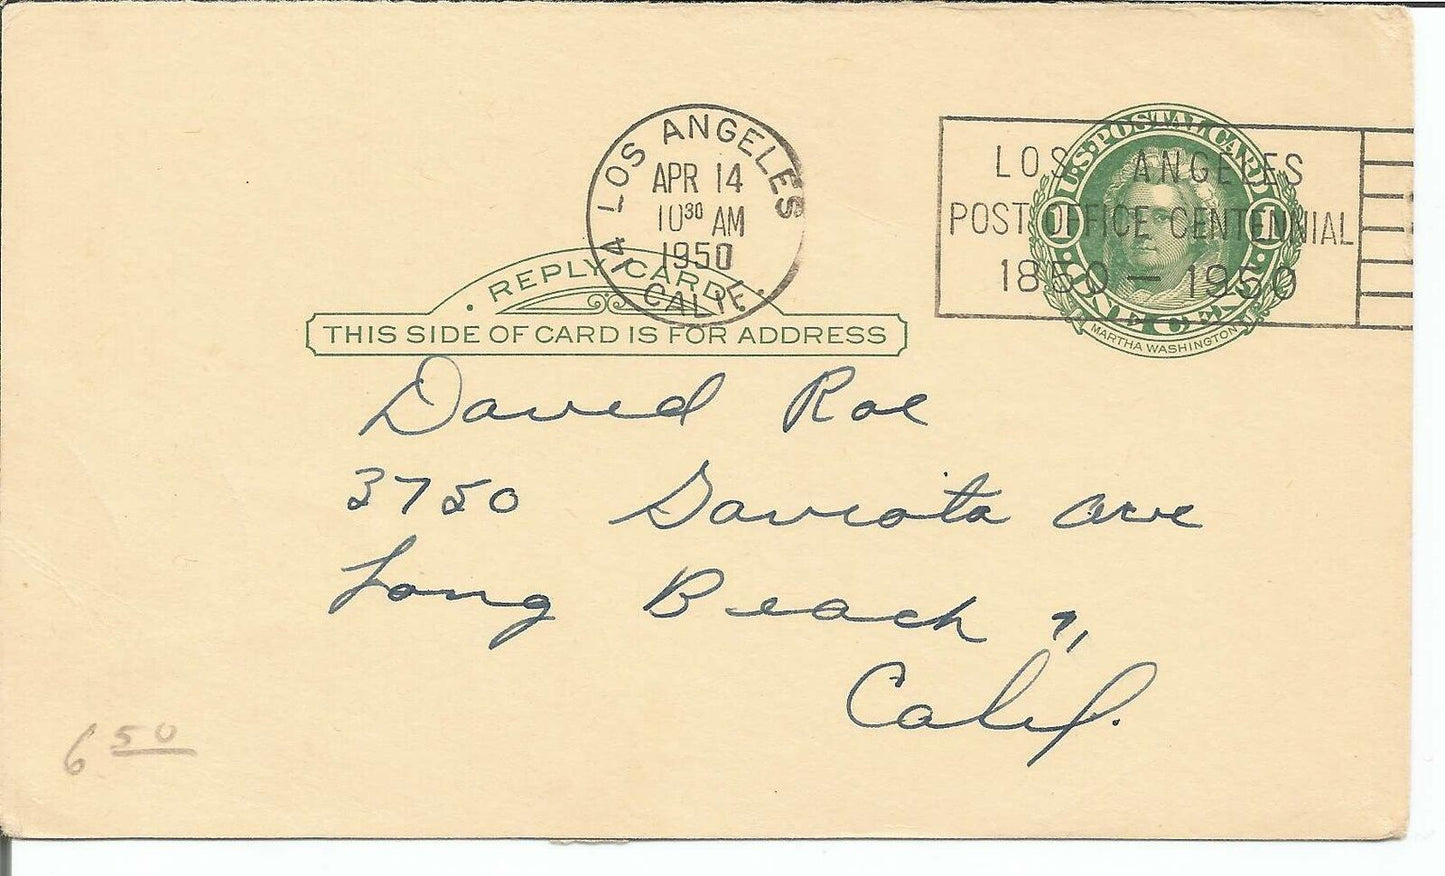 LOS ANGELES 14 CALIF.
APR 14
10 30 AM
1950
LOS ANGELES
POST OFFICE CENTENNIAL
1850 – 1950
U.S. POSTAL CARD
1 1
ONE CENT
MARTHA WASHINGTON
· REPLY CARD ·
THIS SIDE OF CARD IS FOR ADDRESS
David Roe
3750 Gaviota Ave
Long Beach 7,
Calif.
6 50